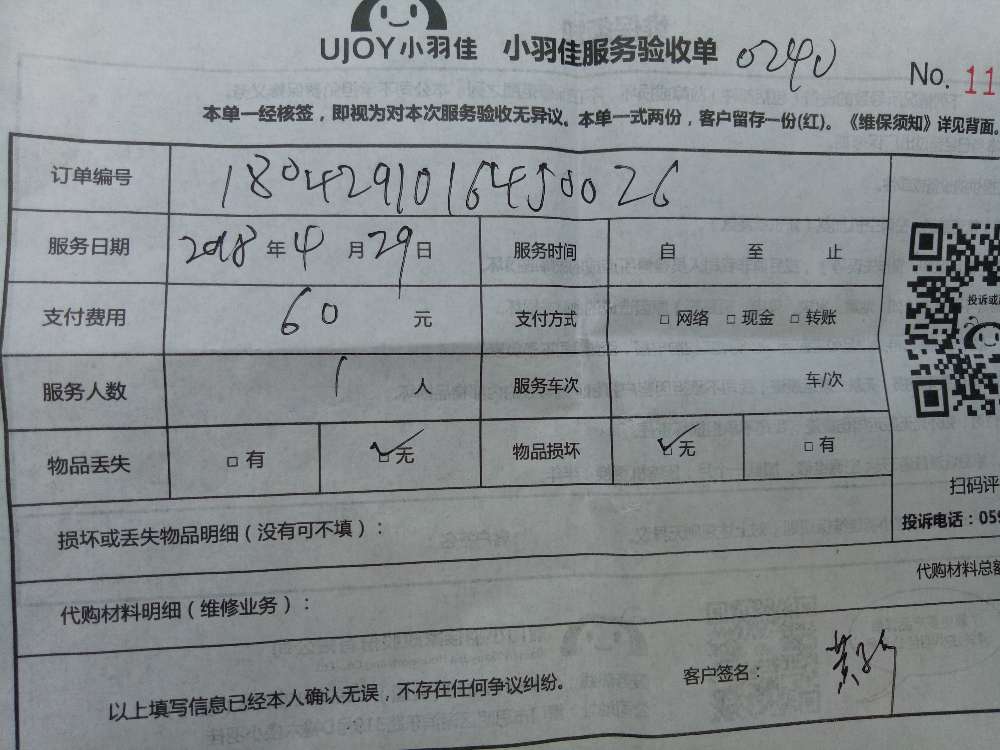 UJOY小羽佳 小羽佳服务验收单 0240
No. 11
本单一经核签，即视为对本次服务验收无异议。本单一式两份，客户留存一份(红)。《维保须知》详见背面。
订单编号 18042910164500026
服务日期 2018年4月29日 服务时间 自 至 止
支付费用 60 元 支付方式 □ 网络 □ 现金 □ 转账
投诉或
服务人数 1 人 服务车次 车/次
物品丢失 □ 有 ☑无 物品损坏 ☑无 □有
扫码评
投诉电话：059
损坏或丢失物品明细（没有可不填）：
代购材料总额
代购材料明细（维修业务）：
以上填写信息已经本人确认无误，不存在任何争议纠纷。 客户签名： 黄